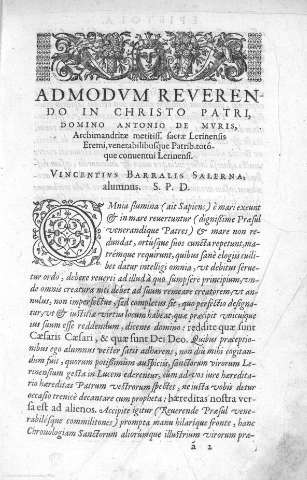 EPISTOLA
ADMODVM REVEREN-
DO IN CHRISTO PATRI,
DOMINO ANTONIO DE MVRIS,
Archimandritæ meritiss. sacræ Lerinensis
Eremi, venerabilibusque Patrib. totó-
que conuentui Lerinensi.
VINCENTIVS BARRALIS SALERNA,
alumnus. S. P. D.
OMnia flumina (ait Sapiens) è mari exeunt
& in mare reuertuntur (dignissime Præsul
venerandique Patres) & mare non re-
dundat, ortusque suos cuncta repetunt, ma-
trémque requirunt, quibus sanè elogiis cuili-
bet datur intelligi omnia, vt debitus serue-
tur ordo, debere reuerti ad illud à quo sumpsere principium, vn-
de omnis creatura miti debet ad suum remeare creatorem, vt an-
nulus, non imperfectus, sed completus sit, quo perfectio designa-
tur, vt & iustitiæ virtus locum habeat, quæ præcipit vnicuique
ius suum esse reddendum, dicente domino: reddite quæ sunt
Cæsaris Cæsari, & quæ sunt Dei Deo. Quibus præceptio-
nibus ego alumnus vester satis adhærens, non diu mihi cogitan-
dum fuit, quorum potissimum auspiciis, sanctorum virorum Le-
rinensium gesta in Lucem ederentur, cùm ad vos iure hæredita-
rio hæreditas Patrum vestrorum spectet, ne iusta vobis detur
occasio trenicè decantare cum propheta: hæreditas nostra ver-
sa est ad alienos. Accipite igitur (Reuerende Præsul vene-
rabilésque commilitones) prompta manu hilarique fronte, hanc
Chronologiam Sanctorum aliorumque illustrium virorum præ-
á 2